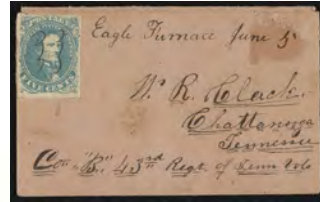 FIVE CENTS
Eagle Furnace June 5
W. R. Clack.
Chattanooga
Tennessee
Co "B." 43rd Regt of Tenn Vols